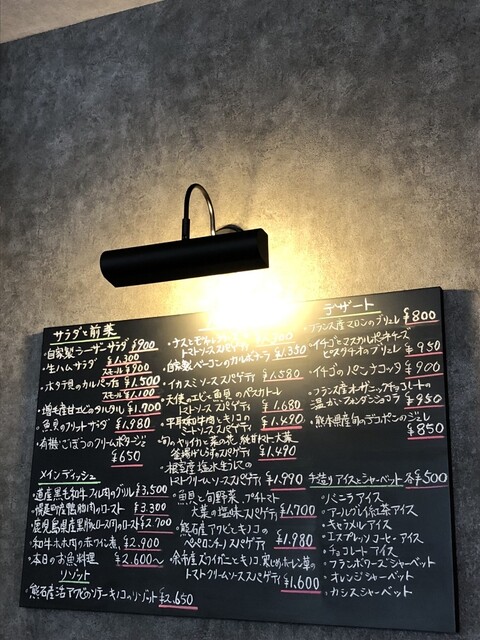 サラダと前菜
・自家製シーザーサラダ ¥900
・生ハムサラダ ¥1,300
スモール ¥900
・ホタテ貝のカルパッチョ ¥1,500
スモール ¥1,100
・増毛産甘エビのタルタル ¥1,900
・魚貝のフリットサラダ ¥1,980
・有機ごぼうのクリームポタージュ
¥650
メインディッシュ
・道産黒毛和牛フィレ肉のグリル ¥3,500
・幌延町産鴨胸肉のロースト ¥3,300
・鹿児島県産黒豚ロースのロースト ¥2,700
・和牛ホホ肉の赤ワイン煮 ¥2,900
・本日のお魚料理 ¥2,600〜
リゾット
・熊石産活アワビのソテーキノコのリゾット ¥2,650
・ナスと
トマトソーススパゲティ
・自家製ベーコンのカルボナーラ ¥1,350
・イカスミソーススパゲティ ¥1,580
・天使のエビと魚貝のペスカトーレ
トマトソーススパゲティ ¥1,680
・平取和牛肉とキノコの
ミートソーススパゲティ ¥1,490
・旬のヤリイカと菜の花 大葉
釜揚げしらすのスパゲティ ¥1,490
・根室産塩水生うにの
トマトクリームソーススパゲティ ¥1,990
・魚貝と旬野菜、プチトマト
大葉の塩味スパゲティ ¥1,700
・熊石産アワビとキノコの
ペペロンチーノスパゲティ ¥1,980
・余市産ズワイガニとキノコ、寒じめホーレン草の
トマトクリームソーススパゲティ ¥1,600
デザート
・フランス産マロンのブリュレ ¥800
・イチゴとマスカルポーネチーズ
ピスタチオのブリュレ ¥950
・イチゴのパンナコッタ ¥900
・フランス産オーガニックチョコレートの
温かいフォンダンショコラ ¥950
・熊本県産旬のデコポンのジュレ
¥850
手造りアイスとシャーベット 各¥500
・バニラアイス
・アールグレイ紅茶アイス
・キャラメルアイス
・エスプレッソコーヒーアイス
・チョコレートアイス
・フランボワーズシャーベット
・オレンジシャーベット
・カシスシャーベット